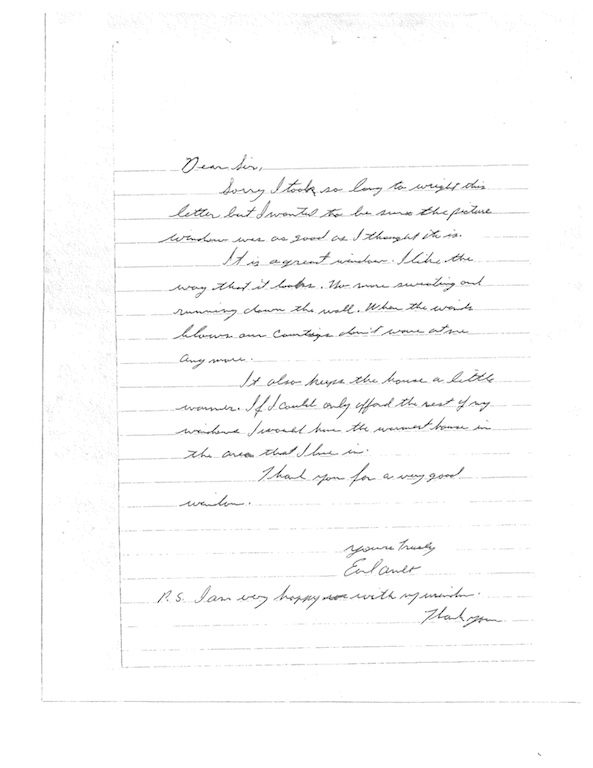 Dear Sir,
Sorry I took so long to wright this
letter but I wanted to be sure the picture
window was as good as I thought it is.
It is a great window. I like the
way that it looks. No more sweating and
running down the wall. When the winds
blows our don't wave at me
any more.
It also keeps the house a little
warmer. If I could only afford the rest of my
windows I would have the warmest house in
the area that I live in.
Thank you for a very good
window.
Yours truely
P.S. I am very happy with my window.
Thank you